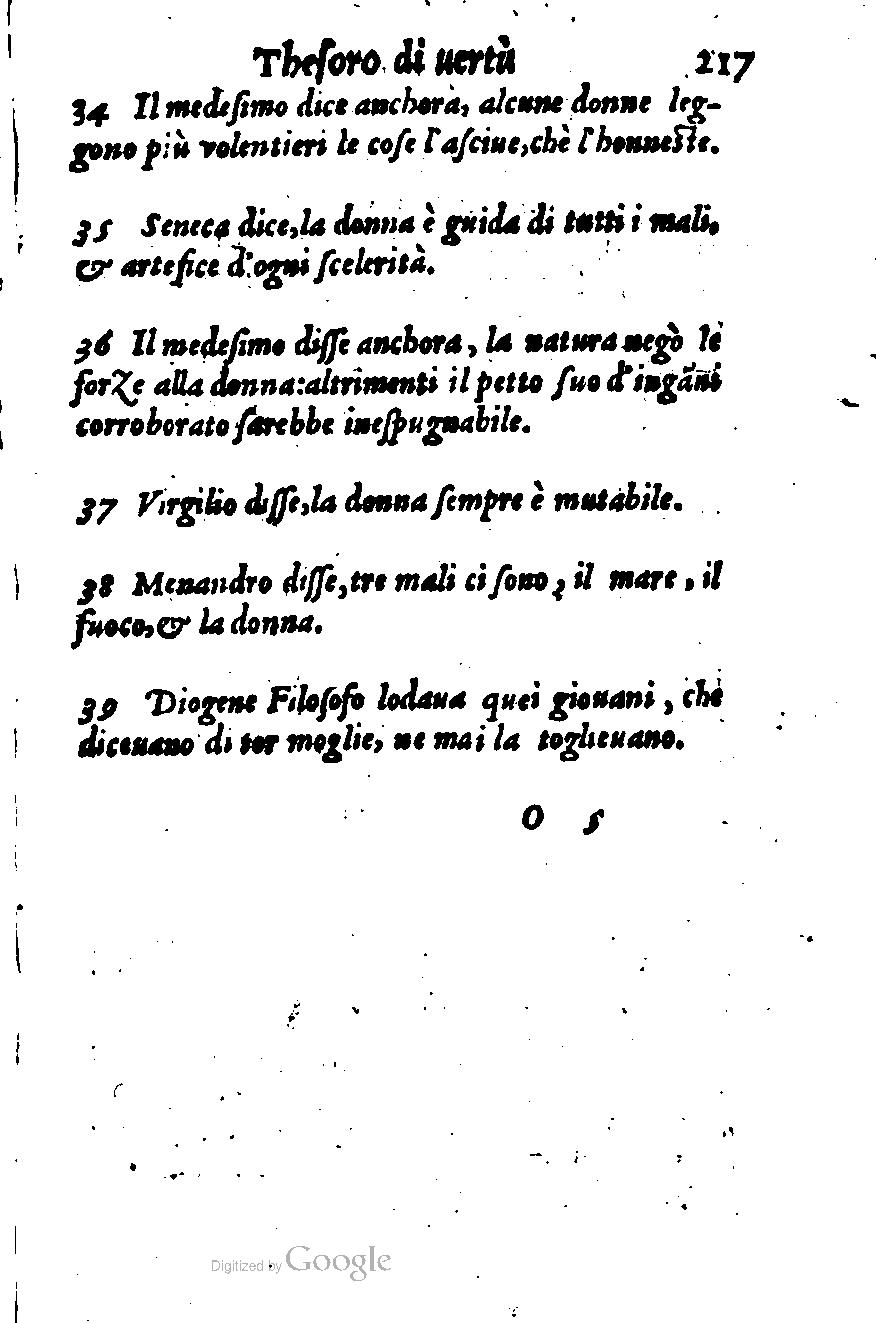 Theſoro di uertù 217
34 Il medeſimo dice anchora, alcune donne leg-
gono più volentieri le coſe laſciue, chè l'honneſte.
35 Seneca dice, la donna è guida di tutti i mali,
& artefice d'ogni ſcelerità.
36 Il medeſimo diſſe anchora, la natura negò le
forze alla donna: altrimenti il petto ſuo d'ingāni
corroborato ſarebbe ineſpugnabile.
37 Virgilio diſſe, la donna ſempre è mutabile.
38 Menandro diſſe, tre mali ci ſono, il mare, il
fuoco, & la donna.
39 Diogene Filoſofo lodaua quei giouani, che
diceuano di tor moglie, ne mai la toglieuano.
O 5
Digitized by Google